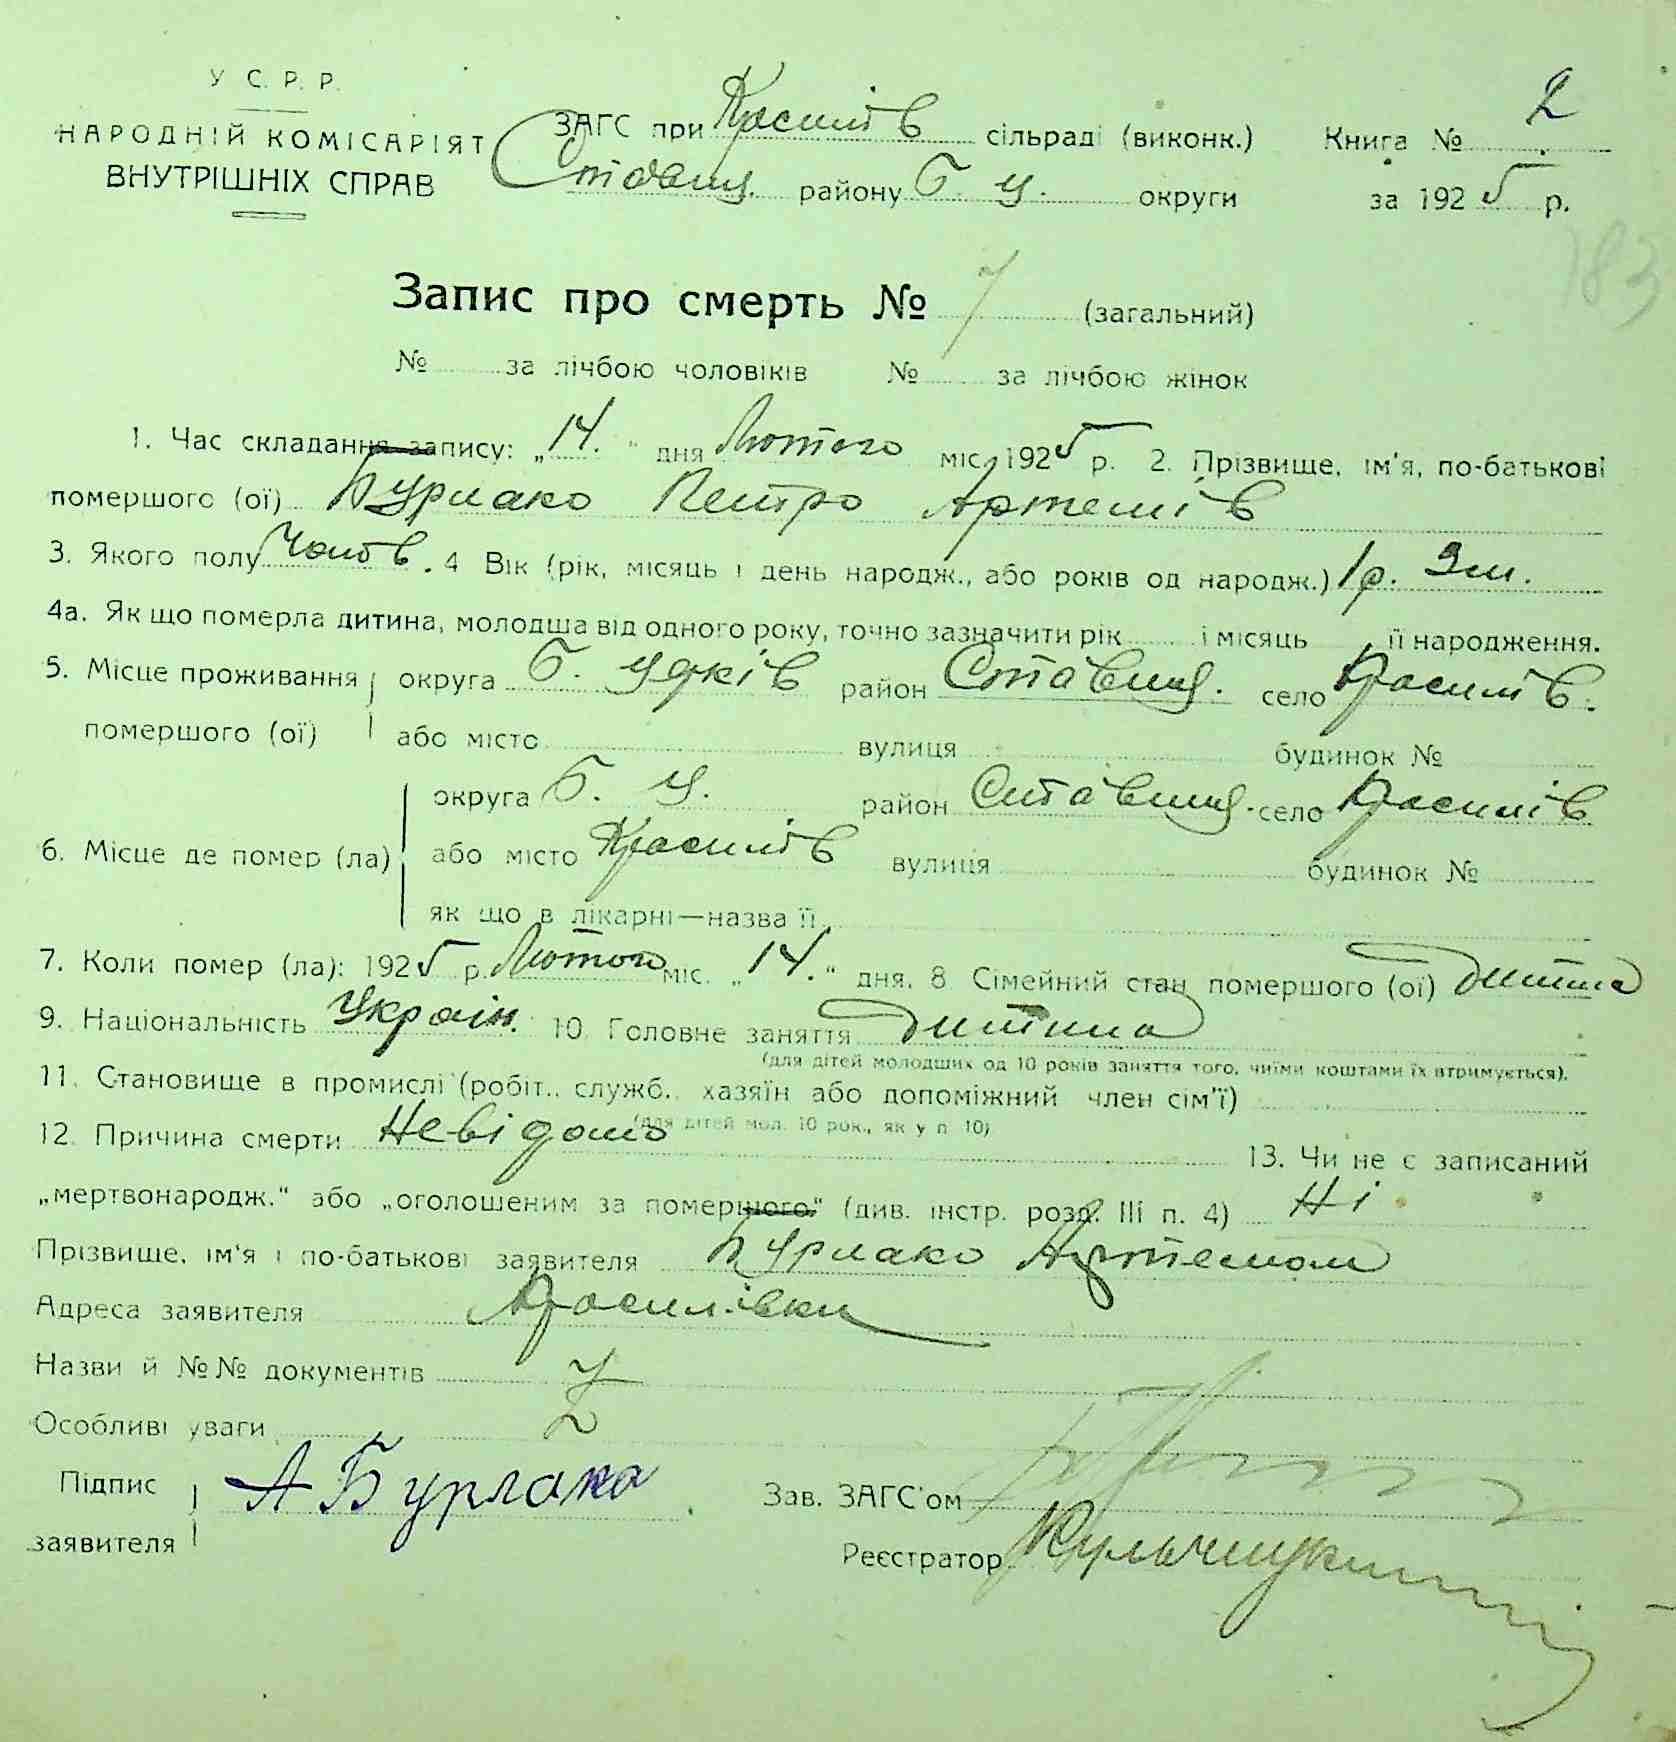 У С. Р. Р.
НАРОДНІЙ КОМІСАРІЯТ
ВНУТРІШНІХ СПРАВ
ЗАГС при Красилів сільраді (виконк.) Книга № 2
Ставищ. району Б. Ц. округи за 1925 р.
183
Запис про смерть № 7 (загальний)
№ за лічбою чоловіків № за лічбою жінок
1. Час складання запису: „14." дня Лютого міс. 1925 р. 2. Прізвище, ім'я, по-батькові
помершого (ої) Бурлако Петро Артемів
3. Якого полу Чолов. 4 Вік (рік, місяць і день народж., або років од народж.) 1 р. 3 м.
4а. Як що померла дитина, молодша від одного року, точно зазначити рік і місяць її народження.
5. Місце проживання округа Б. Церків район Ставищ. село Красилів.
помершого (ої) або місто вулиця будинок №
округа Б. Ц. район Ставищ. село Красилів
6. Місце де помер (ла) або місто Красилів вулиця будинок №
як що в лікарні—назва її
7. Коли помер (ла): 1925 р. Лютого міс. „14." дня. 8 Сімейний стан помершого (ої) Дитина
9. Національність Україін. 10. Головне заняття Дитина
(для дітей молодших од 10 років заняття того, чиїми коштами їх втримується).
11. Становище в промислі (робіт., служб., хазяїн або допоміжний член сім'ї)
(для дітей мол. 10 рок., як у п. 10)
12. Причина смерти Невідомо 13. Чи не є записаний
„мертвонародж." або „оголошеним за помершого" (див. інстр. розд. III п. 4) Ні
Прізвище, ім'я і по-батькові заявителя Бурлако Артемом
Адреса заявителя Красилівки
Назви й №№ документів
Особливі уваги
Підпис заявителя А Бурлака Зав. ЗАГС'ом
Реєстратор Кульчицький